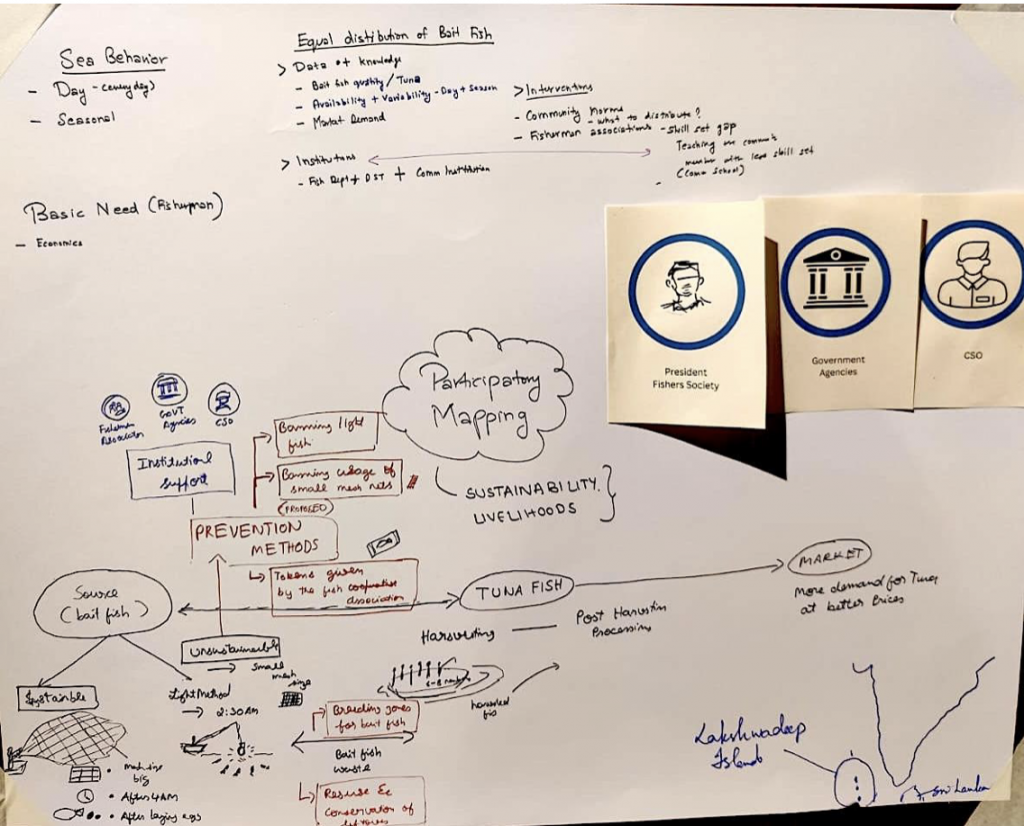 Sea Behavior
- Day - (everyday)
- Seasonal
Equal distibution of Bait Fish
> Data + knowledge
- Bait fish quality / Tuna
- Availability + Variability - Day + Season
- Market Demand
> Institutions
- Fish Dept + DST + Comm Institution
> Interventions
- Community Norms
- what to distribute?
- Fisherman associations - Skill set gap
Teaching
member with less skill set
(Comm school)
Basic Need (Fisherman)
- Economics
President
Fishers Society
Government
Agencies
CSO
Participatory
Mapping
SUSTAINABILITY
LIVELIHOODS
Fisherman
Association
GOVT
Agencies
CSO
Institutional
Support
Banning light
fish
Banning usage of
small mesh nets
(PROPOSED)
PREVENTION
METHODS
Tokens given
by the fish cooperative
association
Source
(bait fish)
TUNA FISH
MARKET
More demand for Tuna
at better Prices
Harvesting
Post Harvestin
Processing
Unsustainable
small
mesh
size
Sustainable
Light Method
2:30AM
Breeding zones
for bait fish
Bait fish
waste
harvested
Mesh size
big
After 4AM
After laying egs
Resuse &
Conservation of
Lakshwadeep
Islands
Sri Lanka